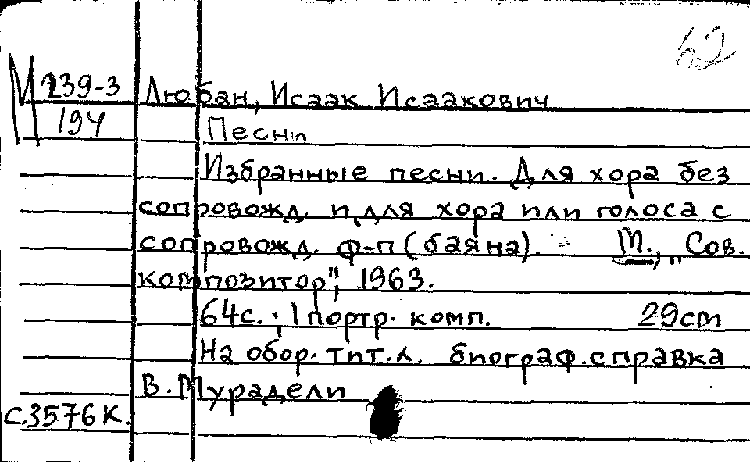 62
М 239-3 Любан, Исаак Исаакович
194 Песни
Избранные песни. Для хора без
сопровожд. и для хора или голоса с
сопровожд. ф-п (баяна). - М., „Сов.
композитор", 1963.
64с.; 1 портр. комп. 29см
На обор. тит. л. биограф. справка
В. Мурадели
с.3576К.